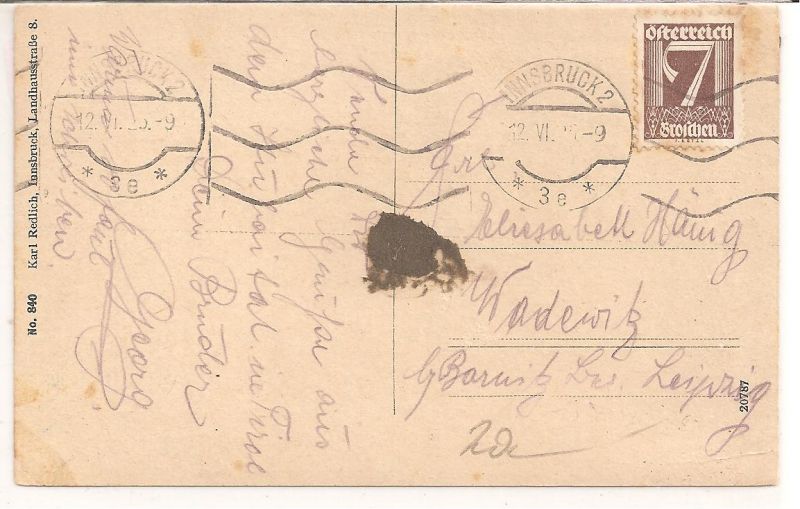 No. 840 Karl Redlich, Innsbruck, Landhausstraße 8.
INNSBRUCK 2
12. VI. 25.-9
* 3e *
INNSBRUCK 2
12. VI. 25.-9
* 3e *
österreich
7
Groschen
Sende
herzliche Grüße aus
dem Zubaital in Tirol
Dein Bruder
Georg
Elisabeth Hänig
Wadewitz
b/ Bornitz Bez. Leipzig
20787